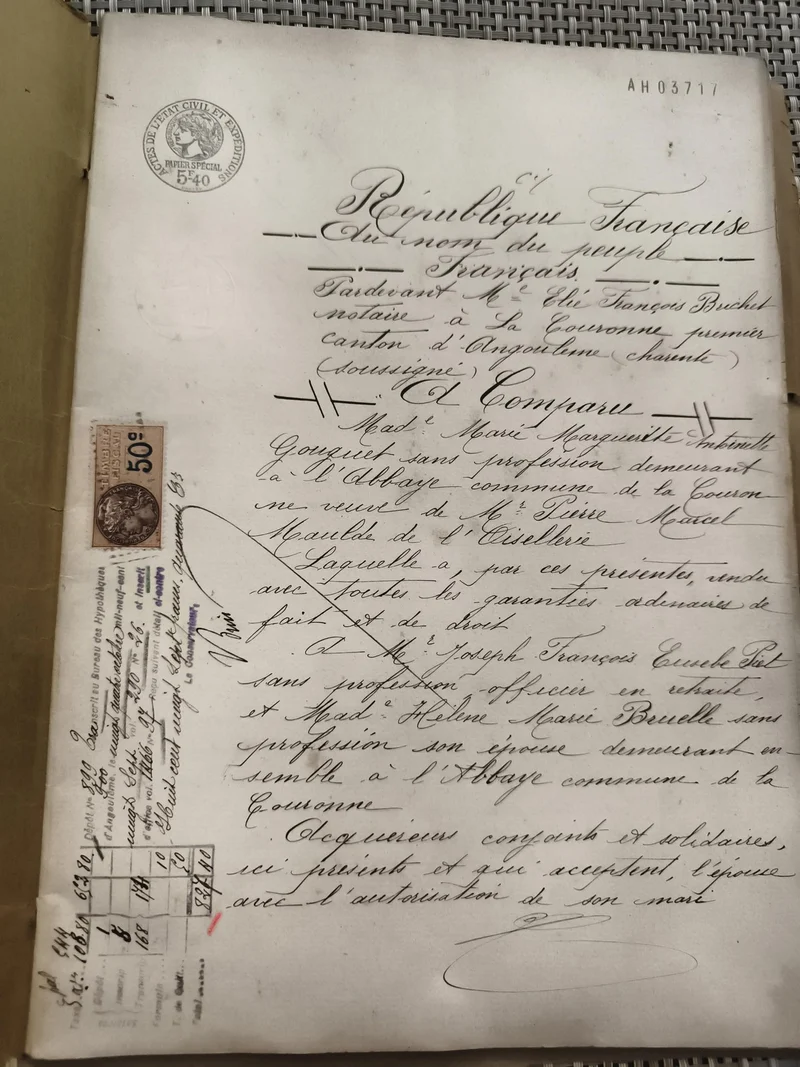 AH03717
ACTES DE L'ÉTAT CIVIL ET EXPÉDITIONS
PAPIER SPÉCIAL
5F40
République Française
Au nom du peuple
Français
Pardevant Me Elié François Brichet
notaire à La Couronne premier
canton d'Angoulême (charente)
(soussigné)
A Comparu
Made Marie Marguerite Antoinette
Gouguet sans profession demeurant
à l'Abbaye commune de la Couron-
ne veuve de Mr Pierre Marcel
Maulde de l'Oisellerie
Laquelle a, par ces présentes, vendu
avec toutes les garanties ordinaires de
fait et de droit
A Mr Joseph François Eusebe Piet
sans profession, officier en retraite,
et Made Hélène Marie Bruelle sans
profession son épouse demeurant en-
semble à l'Abbaye commune de la
Couronne
Acquéreurs conjoints et solidaires,
ici présents et qui acceptent, l'épouse
avec l'autorisation de son mari
50c
Dépôt No 890
Transcrit au Bureau des Hypothèques
d'Angoulême, le vingt quatre octobre mil-neuf-cent
vingt sept vol. 290 No 26. et inscrit
d'office vol. No Reçu suivant détail ci-contre
Huit cent vingt sept francs quarante
Le Conservateur,
827 40
168